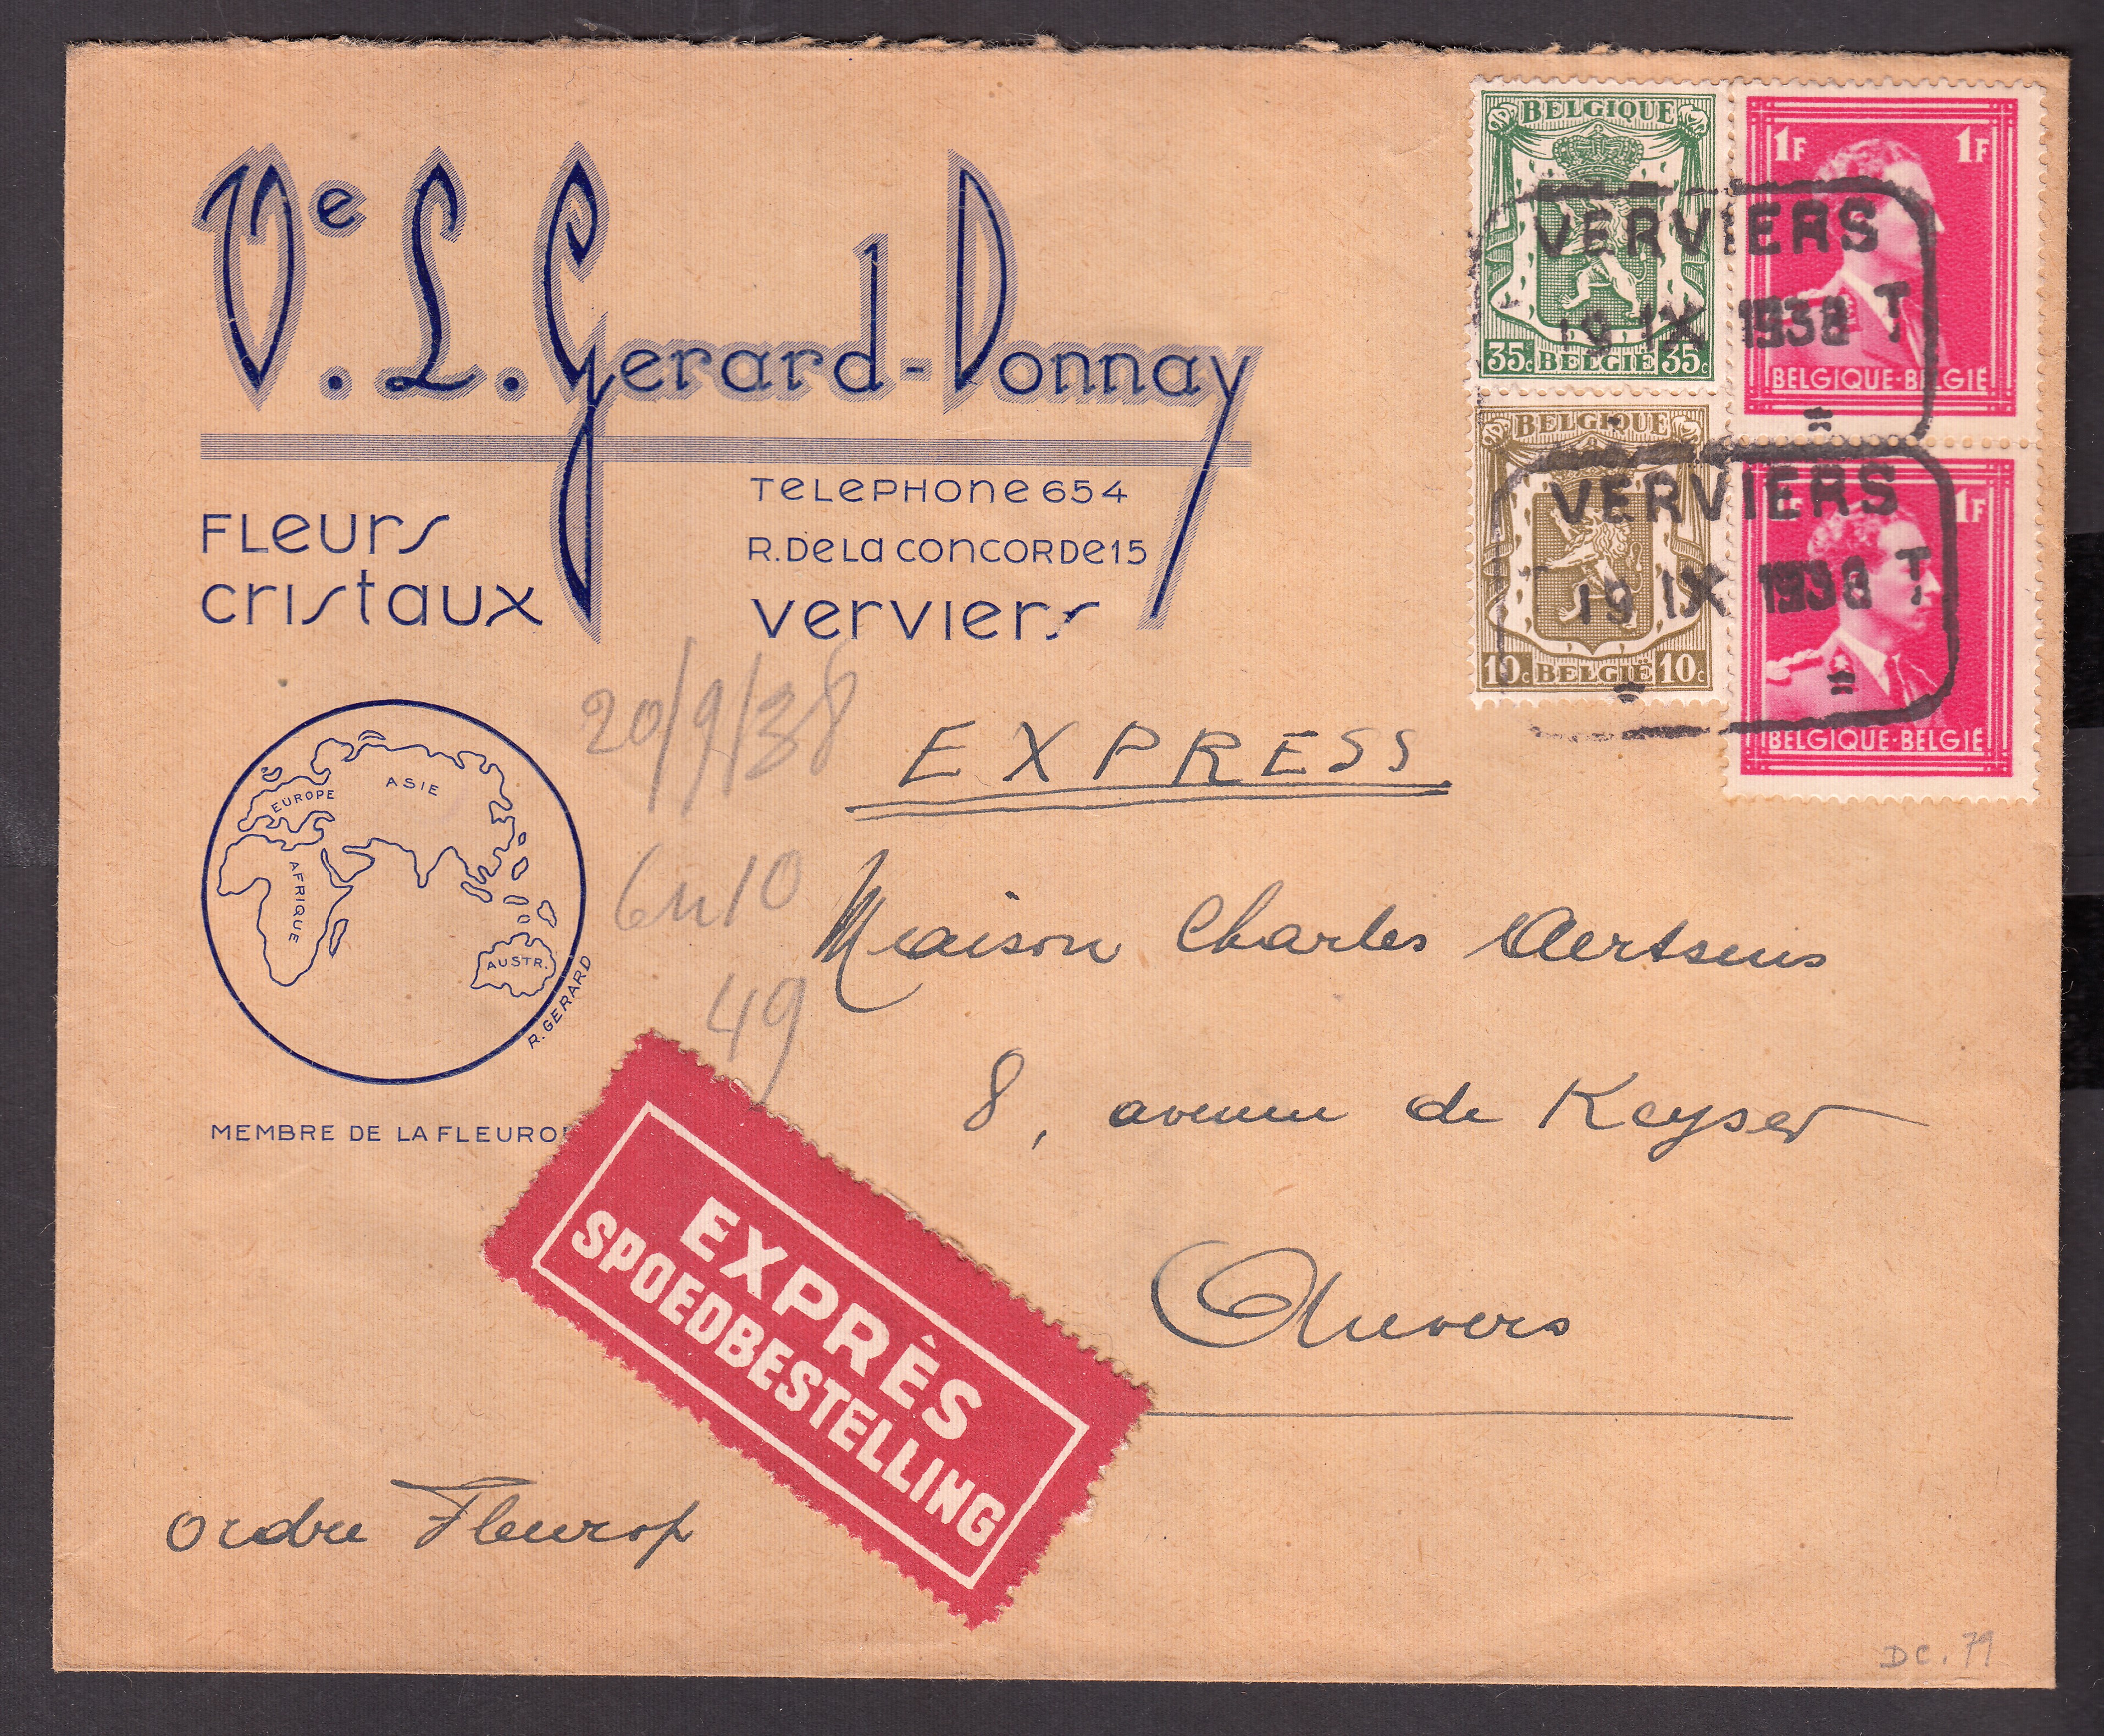 Ve. L. Gerard-Donnay
FLeurs
cristaux
TELEPHONE 654
R. DE LA CONCORDE 15
verviers
BELGIQUE
35c BELGIË 35c
1F 1F
BELGIQUE-BELGIË
BELGIQUE
10c BELGIË 10c
1F
BELGIQUE-BELGIË
VERVIERS
19 IX 1938 T
VERVIERS
19 IX 1938 T
20/9/38
6h10
49
EXPRESS
ASIE
EUROPE
AFRIQUE
AUSTR.
R. GERARD
MEMBRE DE LA FLEURO
Maison Charles Aertsens
8, avenue de Keyser
Anvers
EXPRÊS
SPOEDBESTELLING
Ordre Fleurop
DC. 79